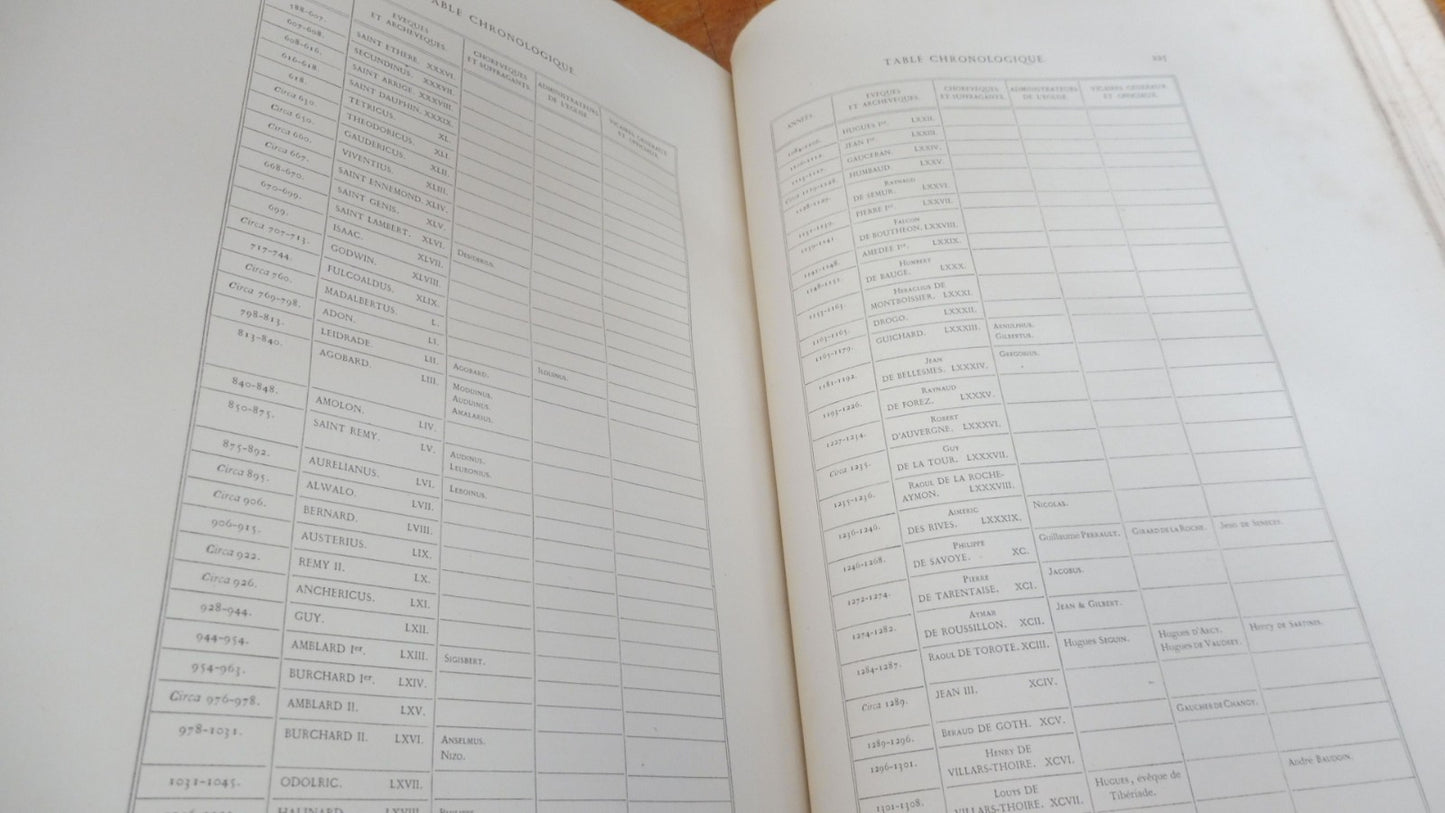 TABLE CHRONOLOGIQUE
EVEQUES ET ARCHEVEQUES. CHOREVEQUES ET SUFFRAGANTS. ADMINISTRATEURS DE L'EGLISE. VICAIRES GENERAUX ET OFFICIAUX.
588-607. SAINT ETHERE XXXVI.
607-608. SECUNDINUS. XXXVII.
608-616. SAINT ARIGE. XXXVIII.
616-618. SAINT DAUPHIN. XXXIX.
618. TETRICUS. XL.
Circa 630. THEODORICUS. XLI.
Circa 650. GAUDERICUS. XLII.
Circa 660. VIVENTIUS. XLIII.
Circa 667. SAINT ENNEMOND. XLIV.
668-670. SAINT GENIS. XLV.
670-699. SAINT LAMBERT. XLVI.
699. ISAAC. XLVII.
Circa 707-713. GODWIN. XLVIII. Desiderius.
717-744. FULCOALDUS. XLIX.
Circa 760. MADALBERTUS. L.
Circa 769-798. ADON. LI.
798-813. LEIDRADE. LII. Agobard. Ilduinus.
813-840. AGOBARD. LIII. Moduinus.
Auduinus.
Amalarius.
840-848. AMOLON. LIV.
850-875. SAINT REMY. LV. Audinus.
Leubonius.
875-892. AURELIANUS. LVI. Leboinus.
Circa 895. ALWALO. LVII.
Circa 906. BERNARD. LVIII.
906-915. AUSTERIUS. LIX.
Circa 922. REMY II. LX.
Circa 926. ANCHERICUS. LXI.
928-944. GUY. LXII.
944-954. AMBLARD Ier. LXIII. Sigisbert.
954-963. BURCHARD Ier. LXIV.
Circa 976-978. AMBLARD II. LXV.
978-1031. BURCHARD II. LXVI. Anselmus.
Nizo.
1031-1045. ODOLRIC. LXVII.
HALINARD LXVIII
TABLE CHRONOLOGIQUE 225
ANNÉES. EVEQUES ET ARCHEVEQUES. CHOREVEQUES ET SUFFRAGANTS. ADMINISTRATEURS DE L'EGLISE. VICAIRES GENERAUX ET OFFICIAUX.
HUGUES Ier. LXXII.
JEAN Ier. LXXIII.
GAUCERAN. LXXIV.
Circa 1119-1128. HUMBAUD. LXXV.
1128-1129. Raynaud
DE SEMUR. LXXVI.
1131-1139. PIERRE Ier. LXXVII.
1139-1141 Falcon
DE BOUTHEON. LXXVIII.
1141-1148. AMEDÉE Ier. LXXIX.
1148-1152. Humbert
DE BAUGE. LXXX.
1153-1163. Heraclius DE
MONTBOISSIER. LXXXI.
1163-1165. DROGO. LXXXII.
1165-1179. GUICHARD. LXXXIII. Arnulphus.
Gilbertus.
1181-1192. Jean
DE BELLESMES. LXXXIV. Gregorius.
1193-1226. Raynaud
DE FOREZ. LXXXV.
1227-1234. Robert
D'AUVERGNE. LXXXVI.
Circa 1235. Guy
DE LA TOUR. LXXXVII.
1235-1236. Raoul DE LA ROCHE-
AYMON. LXXXVIII.
1236-1246. Aimeric
DES RIVES. LXXXIX. Nicolas.
1246-1268. Philippe
DE SAVOYE. XC. Guillaume Perrault. Girard de la Roche. Jens de Seneces.
1272-1274. Pierre
DE TARENTAISE. XCI. Jacobus.
1274-1282. Aymar
DE ROUSSILLON. XCII. Jean & Gilbert.
1284-1287. Raoul DE TOROTE. XCIII. Hugues Seguin. Hugues d'Arcy. Henry de Sartines.
Hugues de Vaudrey.
Circa 1289. JEAN III. XCIV.
1289-1296. Beraud DE GOTH. XCV. Gauches de Changy.
1296-1301. Henry DE
VILLARS-THOIRE. XCVI. André Baudoin.
1301-1308. Louys DE
VILLARS-THOIRE. XCVII. Hugues, évêque de
Tibériade.